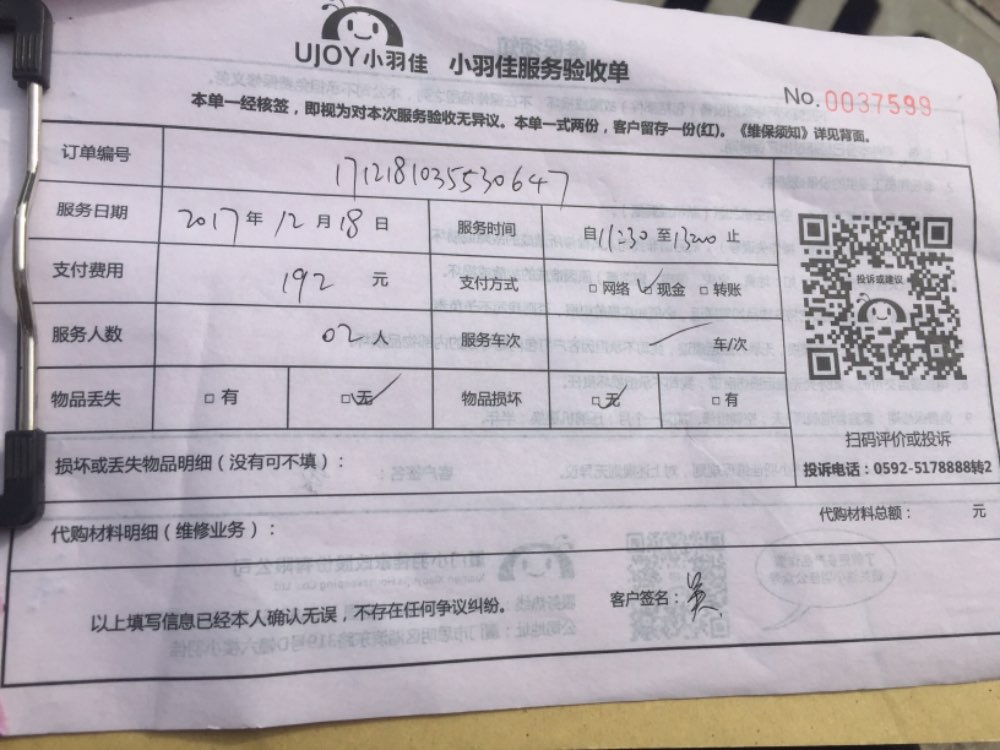 UJOY小羽佳 小羽佳服务验收单
No. 0037599
本单一经核签，即视为对本次服务验收无异议。本单一式两份，客户留存一份(红)。《维保须知》详见背面。
订单编号 1712181035530647
服务日期 2017年12月18日 服务时间 自11:30至1300止
支付费用 192 元 支付方式 □网络 ☑现金 □转账
服务人数 02人 服务车次 车/次
物品丢失 □有 □无✓ 物品损坏 □无✓ □有
投诉或建议
扫码评价或投诉
投诉电话：0592-5178888转2
损坏或丢失物品明细（没有可不填）：
代购材料明细（维修业务）： 代购材料总额： 元
以上填写信息已经本人确认无误，不存在任何争议纠纷。 客户签名：吴